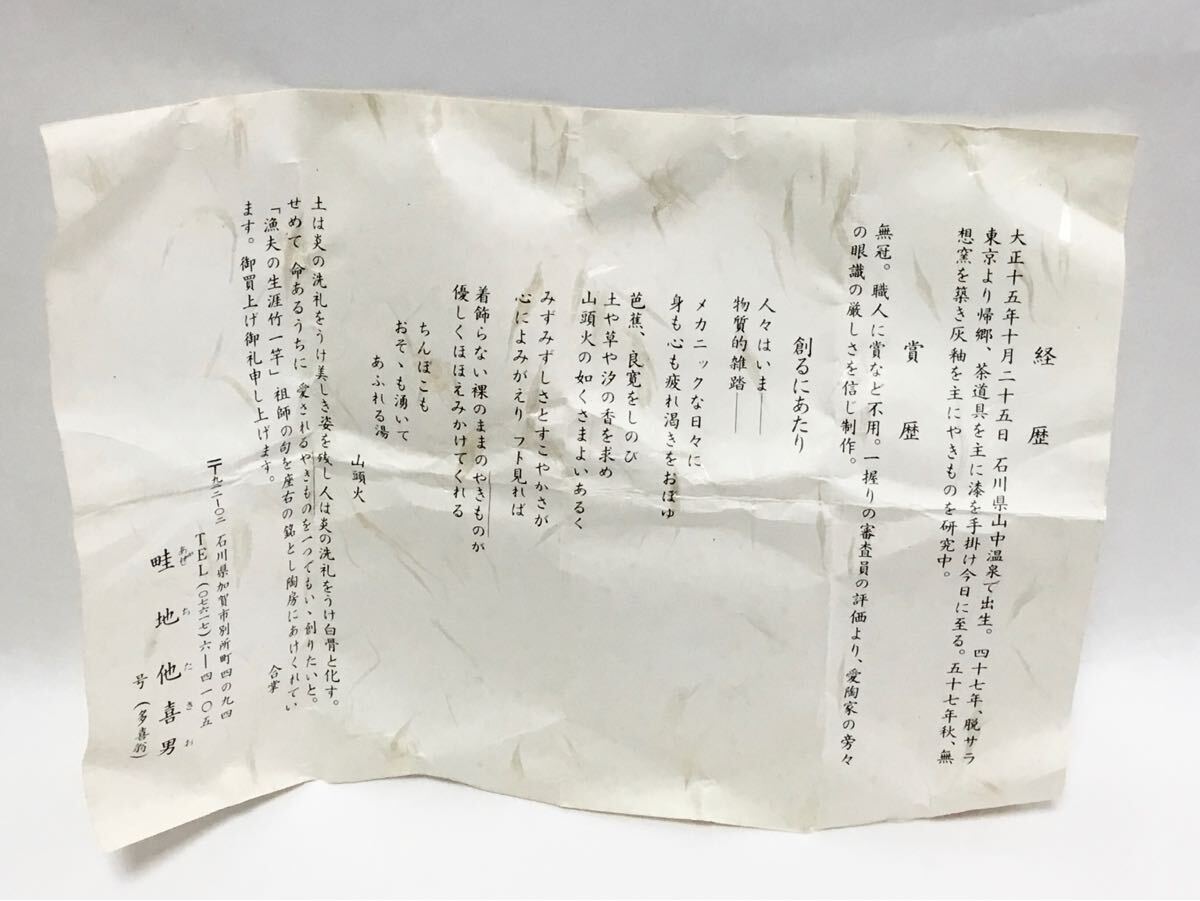 経歴
大正十五年十月二十五日 石川県山中温泉で出生。四十七年、脱サラ
東京より帰郷、茶道具を主に漆を手掛け今日に至る。五十七年秋、無
想窯を築き灰釉を主にやきものを研究中。
賞歴
無冠。職人に賞など不用。一握りの審査員の評価より、愛陶家の旁々
の眼識の厳しさを信じ制作。
創るにあたり
人々はいま――
物質的雑踏――
メカニックな日々に
身も心も疲れ渇きをおぼゆ
芭蕉、良寛をしのび
土や草や汐の香を求め
山頭火の如くさまよいあるく
みずみずしさとすこやかさが
心によみがえり フト見れば
着飾らない裸のままのやきものが
優しくほほえみかけてくれる
ちんぽこも
おそゝも湧いて
あふれる湯
山頭火
土は炎の洗礼をうけ美しき姿を残し人は炎の洗礼をうけ白骨と化す。
せめて 命あるうちに 愛されるやきものを一つでもいゝ創りたいと。
「漁夫の生涯竹一竿」祖師の句を座右の銘とし陶房にあけくれてい
ます。御買上げ御礼申し上げます。
合掌
〒九二二-〇二 石川県加賀市別所町四の九四
TEL(〇七六一七)六―四一〇五
畦地他喜男
あぜちたきお
号(多喜翁)